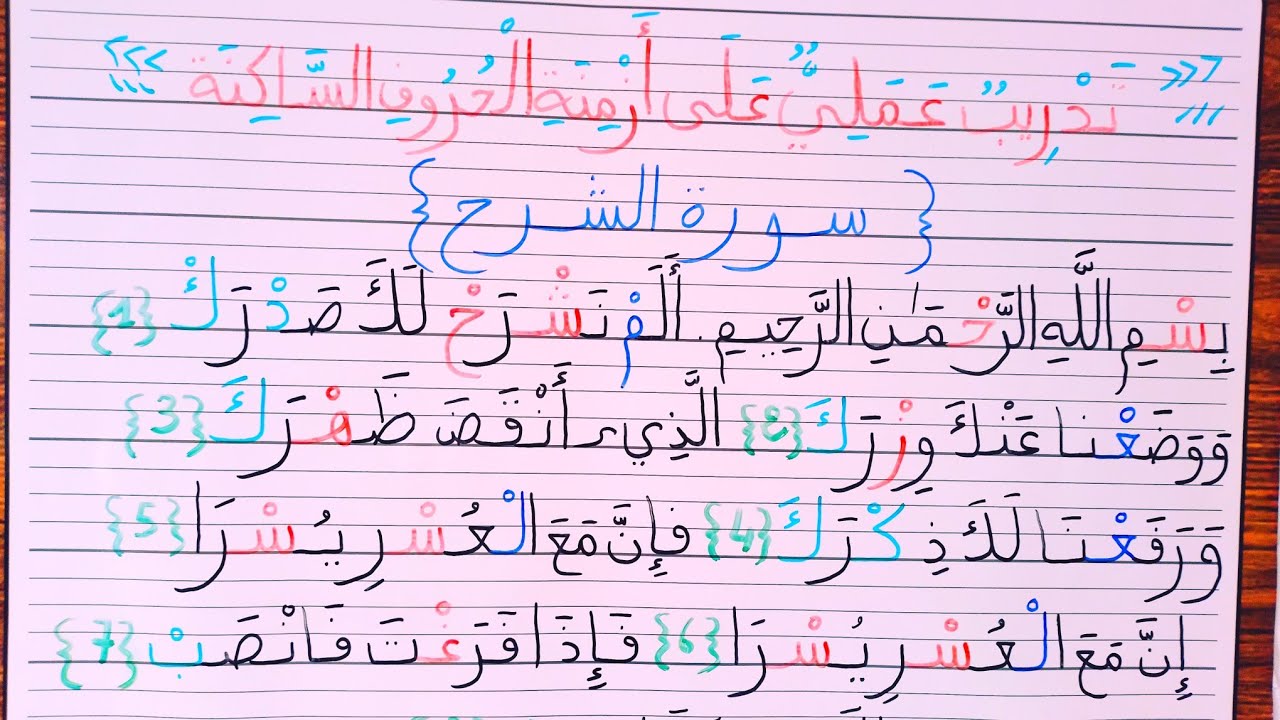 تَدْرِيبٌ عَمَلِيٌّ عَلَى أَزْمِنَةِ الْحُرُوفِ السَّاكِنَةِ
{ سورة الشرح }
بِسْمِ اللَّهِ الرَّحْمَٰنِ الرَّحِيمِ . أَلَمْ نَشْرَحْ لَكَ صَدْرَكْ {1}
وَوَضَعْنا عَنْكَ وِزْرَكَ {2} الَّذِيۦ أَنْقَضَ ظَهْرَكَ {3}
وَرَفَعْنَا لَكَ ذِكْرَكَ {4} فَإِنَّ مَعَ الْعُسْرِ يُسْرَا {5}
إِنَّ مَعَ الْعُسْرِ يُسْرَا {6} فَإِذَا فَرَغْتَ فَانْصَبْ {7}